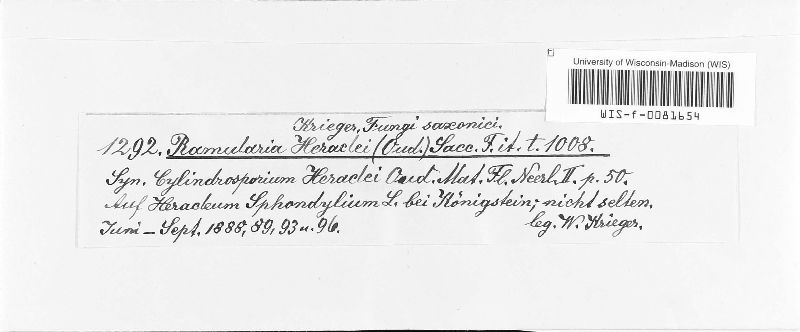 University of Wisconsin-Madison (WIS)
WIS-f-0081654
Krieger, Fungi saxonici.
1292. Ramularia Heraclei (Oud.) Sacc. F. it. t. 1008.
Syn. Cylindrosporium Heraclei Oud. Mat. Fl. Neerl. II. p. 50.
Auf Heracleum Sphondylium L. bei Königstein; nicht selten.
Juni – Sept. 1888, 89, 93 u. 96.
leg. W. Krieger.